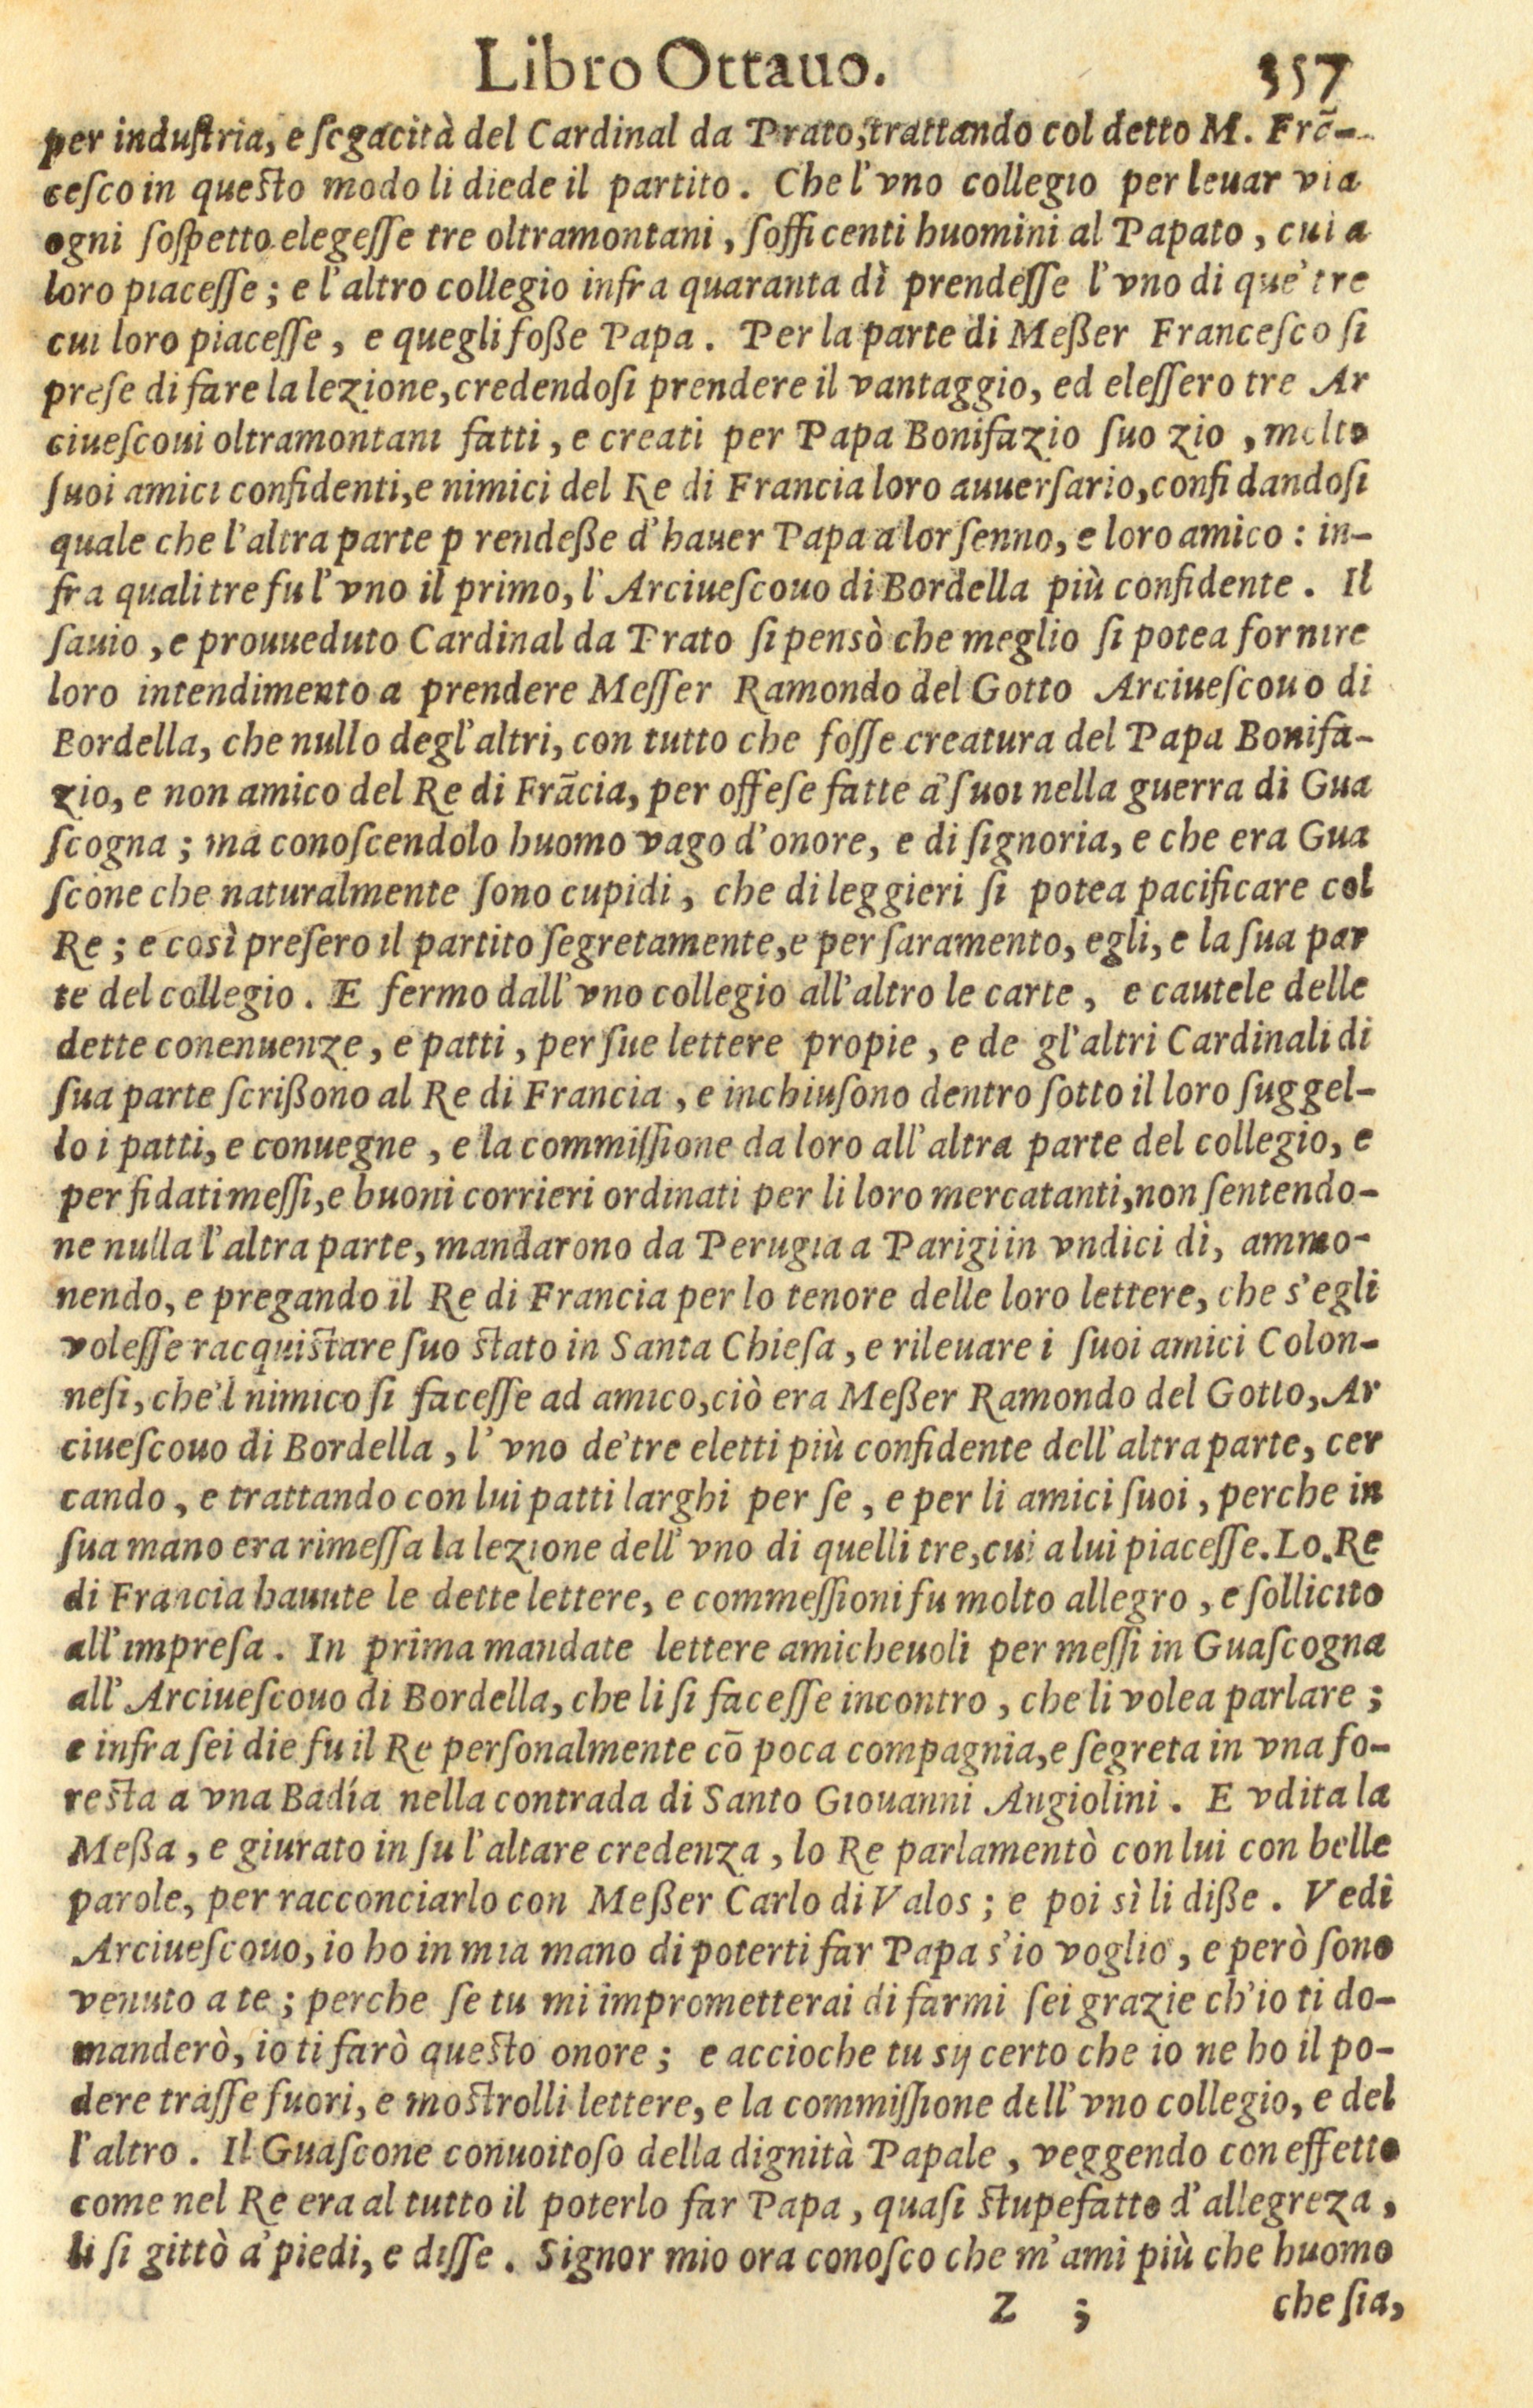 Libro Ottauo. 357
per induſtria, e ſegacità del Cardinal da Prato, trattando col detto M. Frã-
ceſco in queſto modo li diede il partito. Che l'vno collegio per leuar via
ogni ſoſpetto elegeſſe tre oltramontani, ſofficenti huomini al Papato, cui a
loro piaceſſe; e l'altro collegio infra quaranta dì prendeſſe l'vno di que' tre
cui loro piaceſſe, e quegli foße Papa. Per la parte di Meßer Franceſco ſi
preſe di fare la lezione, credendoſi prendere il vantaggio, ed eleſſero tre Ar
ciueſcoui oltramontani fatti, e creati per Papa Bonifazio ſuo zio, molto
ſuoi amici confidenti, e nimici del Re di Francia loro auuerſario, confidandoſi
quale che l'altra parte prendeße d'hauer Papa a lor ſenno, e loro amico: in-
fra quali tre fu l'vno il primo, l'Arciueſcouo di Bordella più confidente. Il
ſauio, e proueduto Cardinal da Prato ſi pensò che meglio ſi potea fornire
loro intendimento a prendere Meſſer Ramondo del Gotto Arciueſcouo di
Bordella, che nullo degl'altri, con tutto che foſſe creatura del Papa Bonifa-
zio, e non amico del Re di Frãcia, per offeſe fatte a' ſuoi nella guerra di Gua
ſcogna; ma conoſcendolo huomo vago d'onore, e di ſignoria, e che era Gua
ſcone che naturalmente ſono cupidi, che di leggieri ſi potea pacificare col
Re; e così preſero il partito ſegretamente, e per ſaramento, egli, e la ſua par
te del collegio. E fermo dall'vno collegio all'altro le carte, e cautele delle
dette conenuenze, e patti, per ſue lettere propie, e de gl'altri Cardinali di
ſua parte ſcrißono al Re di Francia, e inchiuſono dentro ſotto il loro ſuggel-
lo i patti, e conuegne, e la commiſſione da loro all'altra parte del collegio, e
per fidati meſſi, e buoni corrieri ordinati per li loro mercatanti, non ſentendo-
ne nulla l'altra parte, mandarono da Perugia a Parigi in vndici dì, ammo-
nendo, e pregando il Re di Francia per lo tenore delle loro lettere, che s'egli
voleſſe racquiſtare ſuo ſtato in Santa Chieſa, e rileuare i ſuoi amici Colon-
neſi, che'l nimico ſi faceſſe ad amico, ciò era Meßer Ramondo del Gotto, Ar
ciueſcouo di Bordella, l'vno de' tre eletti più confidente dell'altra parte, cer
cando, e trattando con lui patti larghi per ſe, e per li amici ſuoi, perche in
ſua mano era rimeſſa la lezione dell'vno di quelli tre, cui a lui piaceſſe. Lo Re
di Francia hauute le dette lettere, e commeſſioni fu molto allegro, e ſollicito
all'impreſa. In prima mandate lettere amicheuoli per meſſi in Guaſcogna
all'Arciueſcouo di Bordella, che li ſi faceſſe incontro, che li volea parlare;
e infra ſei die fu il Re perſonalmente cō poca compagnia, e ſegreta in vna fo-
reſta a vna Badía nella contrada di Santo Giouanni Angiolini. E vdita la
Meßa, e giurato in ſu l'altare credenza, lo Re parlamentò con lui con belle
parole, per racconciarlo con Meßer Carlo di Valos; e poi sì li diße. Vedi
Arciueſcouo, io ho in mia mano di poterti far Papa s'io voglio, e però ſono
venuto a te; perche ſe tu mi imprometterai di farmi ſei grazie ch'io ti do-
manderò, io ti farò queſto onore; e accioche tu sij certo che io ne ho il po-
dere traſſe fuori, e moſtrolli lettere, e la commiſſione dell'vno collegio, e del
l'altro. Il Guaſcone conuoitoſo della dignità Papale, veggendo con effetto
come nel Re era al tutto il poterlo far Papa, quaſi ſtupefatto d'allegreza,
li ſi gittò a' piedi, e diſſe. Signor mio ora conoſco che m'ami più che huomo
Z ; che ſia,